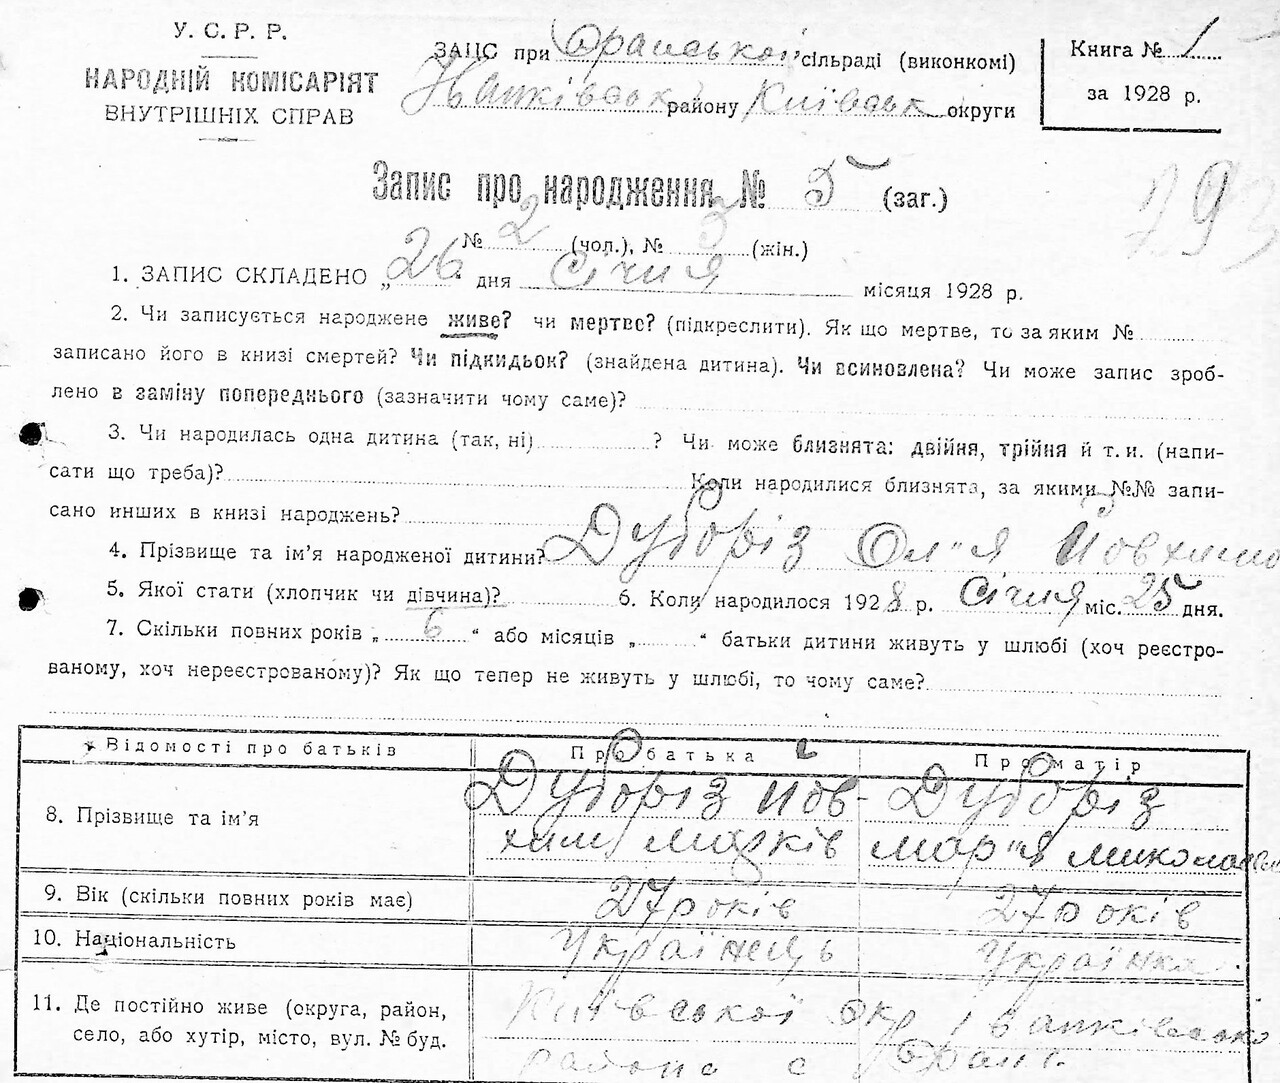 У. С. Р. Р.
НАРОДНІЙ КОМІСАРІЯТ
ВНУТРІШНІХ СПРАВ
ЗАЦС при Оранської сільраді (виконкомі)
Іванківськ району Київськ округи
Книга № 1
за 1928 р.
Запис про народження № 5 (заг.)
79
№ 2 (чол.), № 3 (жін.)
1. ЗАПИС СКЛАДЕНО „ 26 “ дня Січня місяця 1928 р.
2. Чи записується народжене живе? чи мертве? (підкреслити). Як що мертве, то за яким №
записано його в книзі смертей? Чи підкидьок? (знайдена дитина). Чи всиновлена? Чи може запис зроб-
лено в заміну попереднього (зазначити чому саме)?
3. Чи народилась одна дитина (так, ні) ? Чи може близнята: двійня, трійня й т. и. (напи-
сати що треба)? Коли народилися близнята, за якими №№ запи-
сано инших в книзі народжень?
4. Прізвище та ім’я народженої дитини? Дуборіз Ол"я Йовхимо
5. Якої стати (хлопчик чи дівчина)? 6. Коли народилося 1928 р. Січня міс. 25 дня.
7. Скільки повних років „ 6 “ або місяців „ “ батьки дитини живуть у шлюбі (хоч реєстро-
ваному, хоч нереєстрованому)? Як що тепер не живуть у шлюбі, то чому саме?
Відомості про батьків Про батька Про матір
8. Прізвище та ім’я Дуборіз Йов- Дуборіз
хим Марків Мар"я Миколаєв
9. Вік (скільки повних років має) 27 років 27 років
10. Національність Українець Українка
11. Де постійно живе (округа, район, Київської окр Іванківсько
село, або хутір, місто, вул. № буд. района с Оране